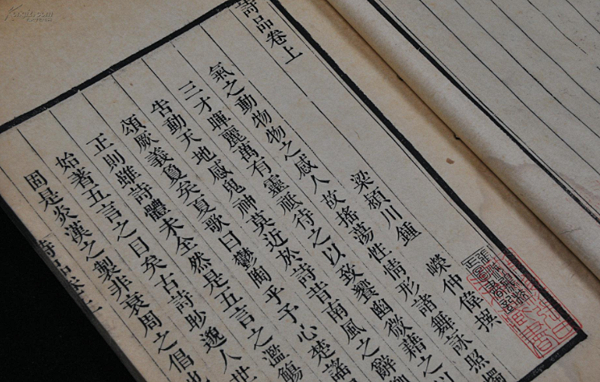 詩品卷上
梁頴川鍾 嶸仲偉撰
氣之動物物之感人故搖蕩性情形諸舞詠
三才暉麗萬有靈祇待之以致饗幽微藉之
告動天地感鬼神莫近於詩昔南風之辭
頌厥義敻矣夏歌曰鬱陶乎予心楚謠
正則雖詩體未全然是五言之濫觴
始著五言之目矣古詩眇邈人世
固是炎漢之製非衰周之倡也
詩品卷上